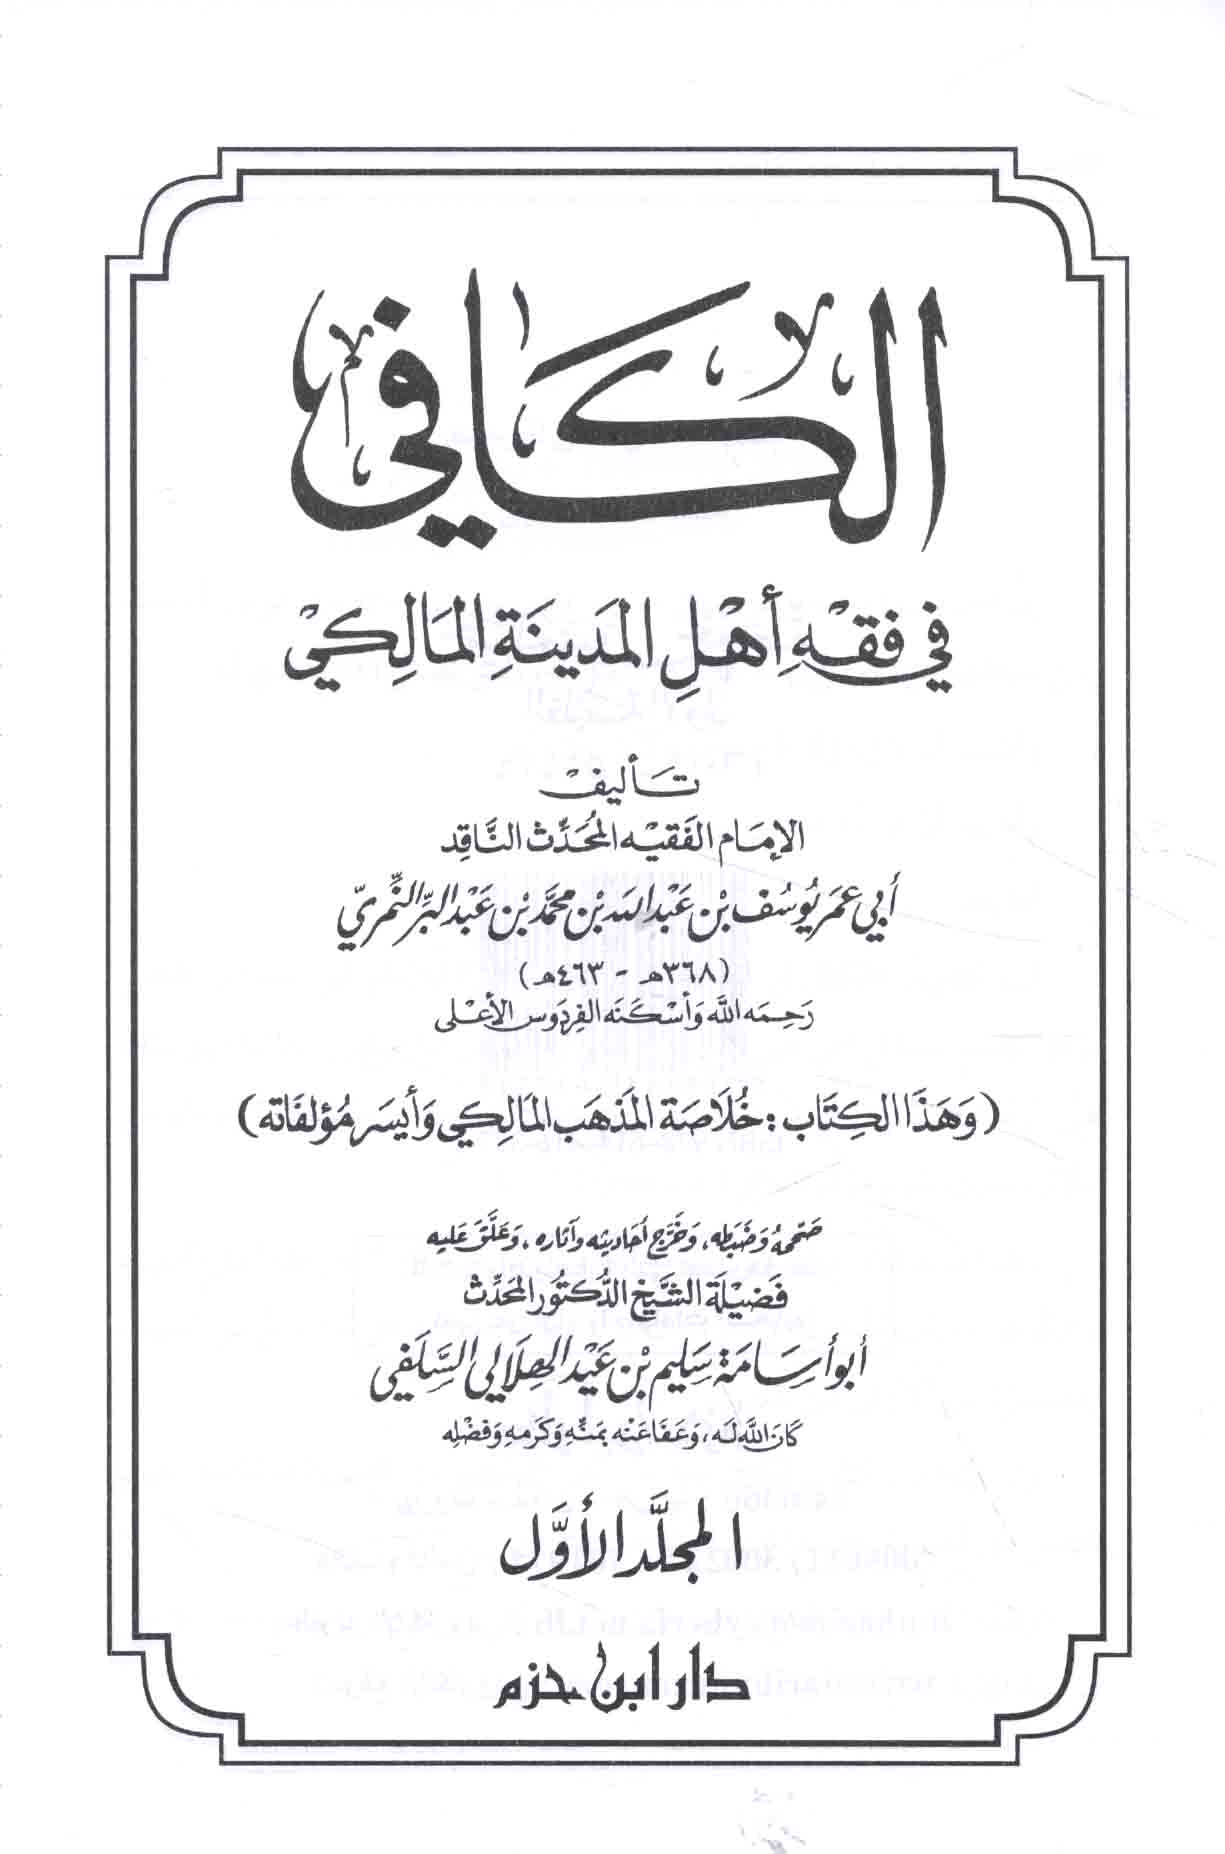 الكافي
في فقه أهل المدينة المالكي
تأليف
الإمام الفقيه المحدث الناقد
أبي عمر يوسف بن عبد الله بن محمد بن عبد البر النمري
(٣٦٨هـ - ٤٦٣هـ)
رحمه الله وأسكنه الفردوس الأعلى
(وهذا الكتاب: خلاصة المذهب المالكي وأيسر مؤلفاته)
صححه وضبطه، وخرج أحاديثه وآثاره، وعلق عليه
فضيلة الشيخ الدكتور المحدث
أبو أسامة سليم بن عيد الهلالي السلفي
كان الله له، وعفا عنه بمنه وكرمه وفضله
المجلد الأول
دار ابن حزم